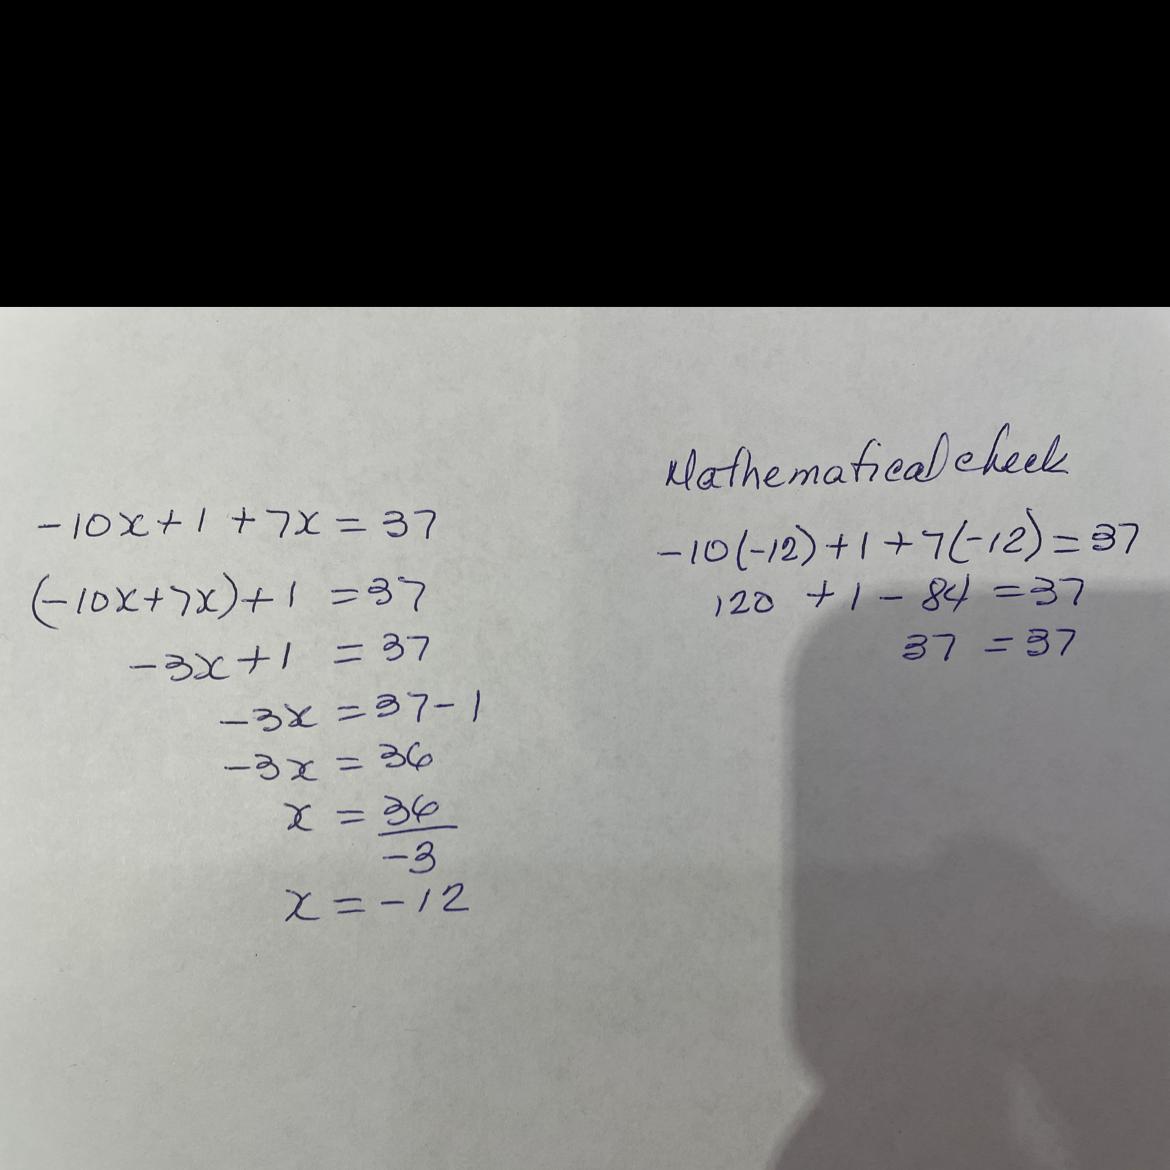 -10x+1+7x=37
(-10x+7x)+1=37
-3x+1=37
-3x=37-1
-3x=36
x=36
-3
x=-12
Mathematical check
-10(-12)+1+7(-12)=37
120+1-84=37
37=37